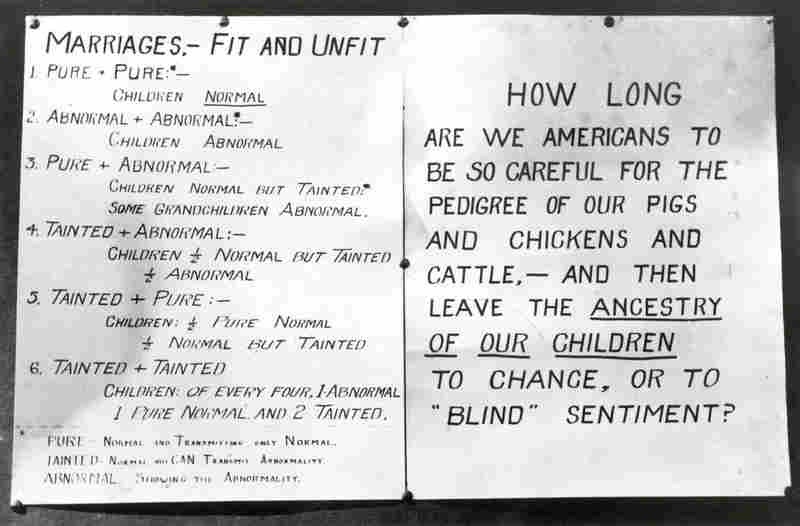 MARRIAGES.— FIT AND UNFIT
1. PURE + PURE:—
CHILDREN NORMAL
2. ABNORMAL + ABNORMAL:—
CHILDREN ABNORMAL
3. PURE + ABNORMAL:—
CHILDREN NORMAL BUT TAINTED:
SOME GRANDCHILDREN ABNORMAL.
4. TAINTED + ABNORMAL:—
CHILDREN ½ NORMAL BUT TAINTED
½ ABNORMAL
5. TAINTED + PURE:—
CHILDREN: ½ PURE NORMAL
½ NORMAL BUT TAINTED
6. TAINTED + TAINTED
CHILDREN: OF EVERY FOUR, 1 ABNORMAL
1 PURE NORMAL AND 2 TAINTED.
PURE - NORMAL AND TRANSMITTING ONLY NORMAL.
TAINTED - NORMAL BUT CAN TRANSMIT ABNORMALITY.
ABNORMAL. SHOWING THE ABNORMALITY.
HOW LONG
ARE WE AMERICANS TO
BE SO CAREFUL FOR THE
PEDIGREE OF OUR PIGS
AND CHICKENS AND
CATTLE,— AND THEN
LEAVE THE ANCESTRY
OF OUR CHILDREN
TO CHANCE, OR TO
"BLIND" SENTIMENT?